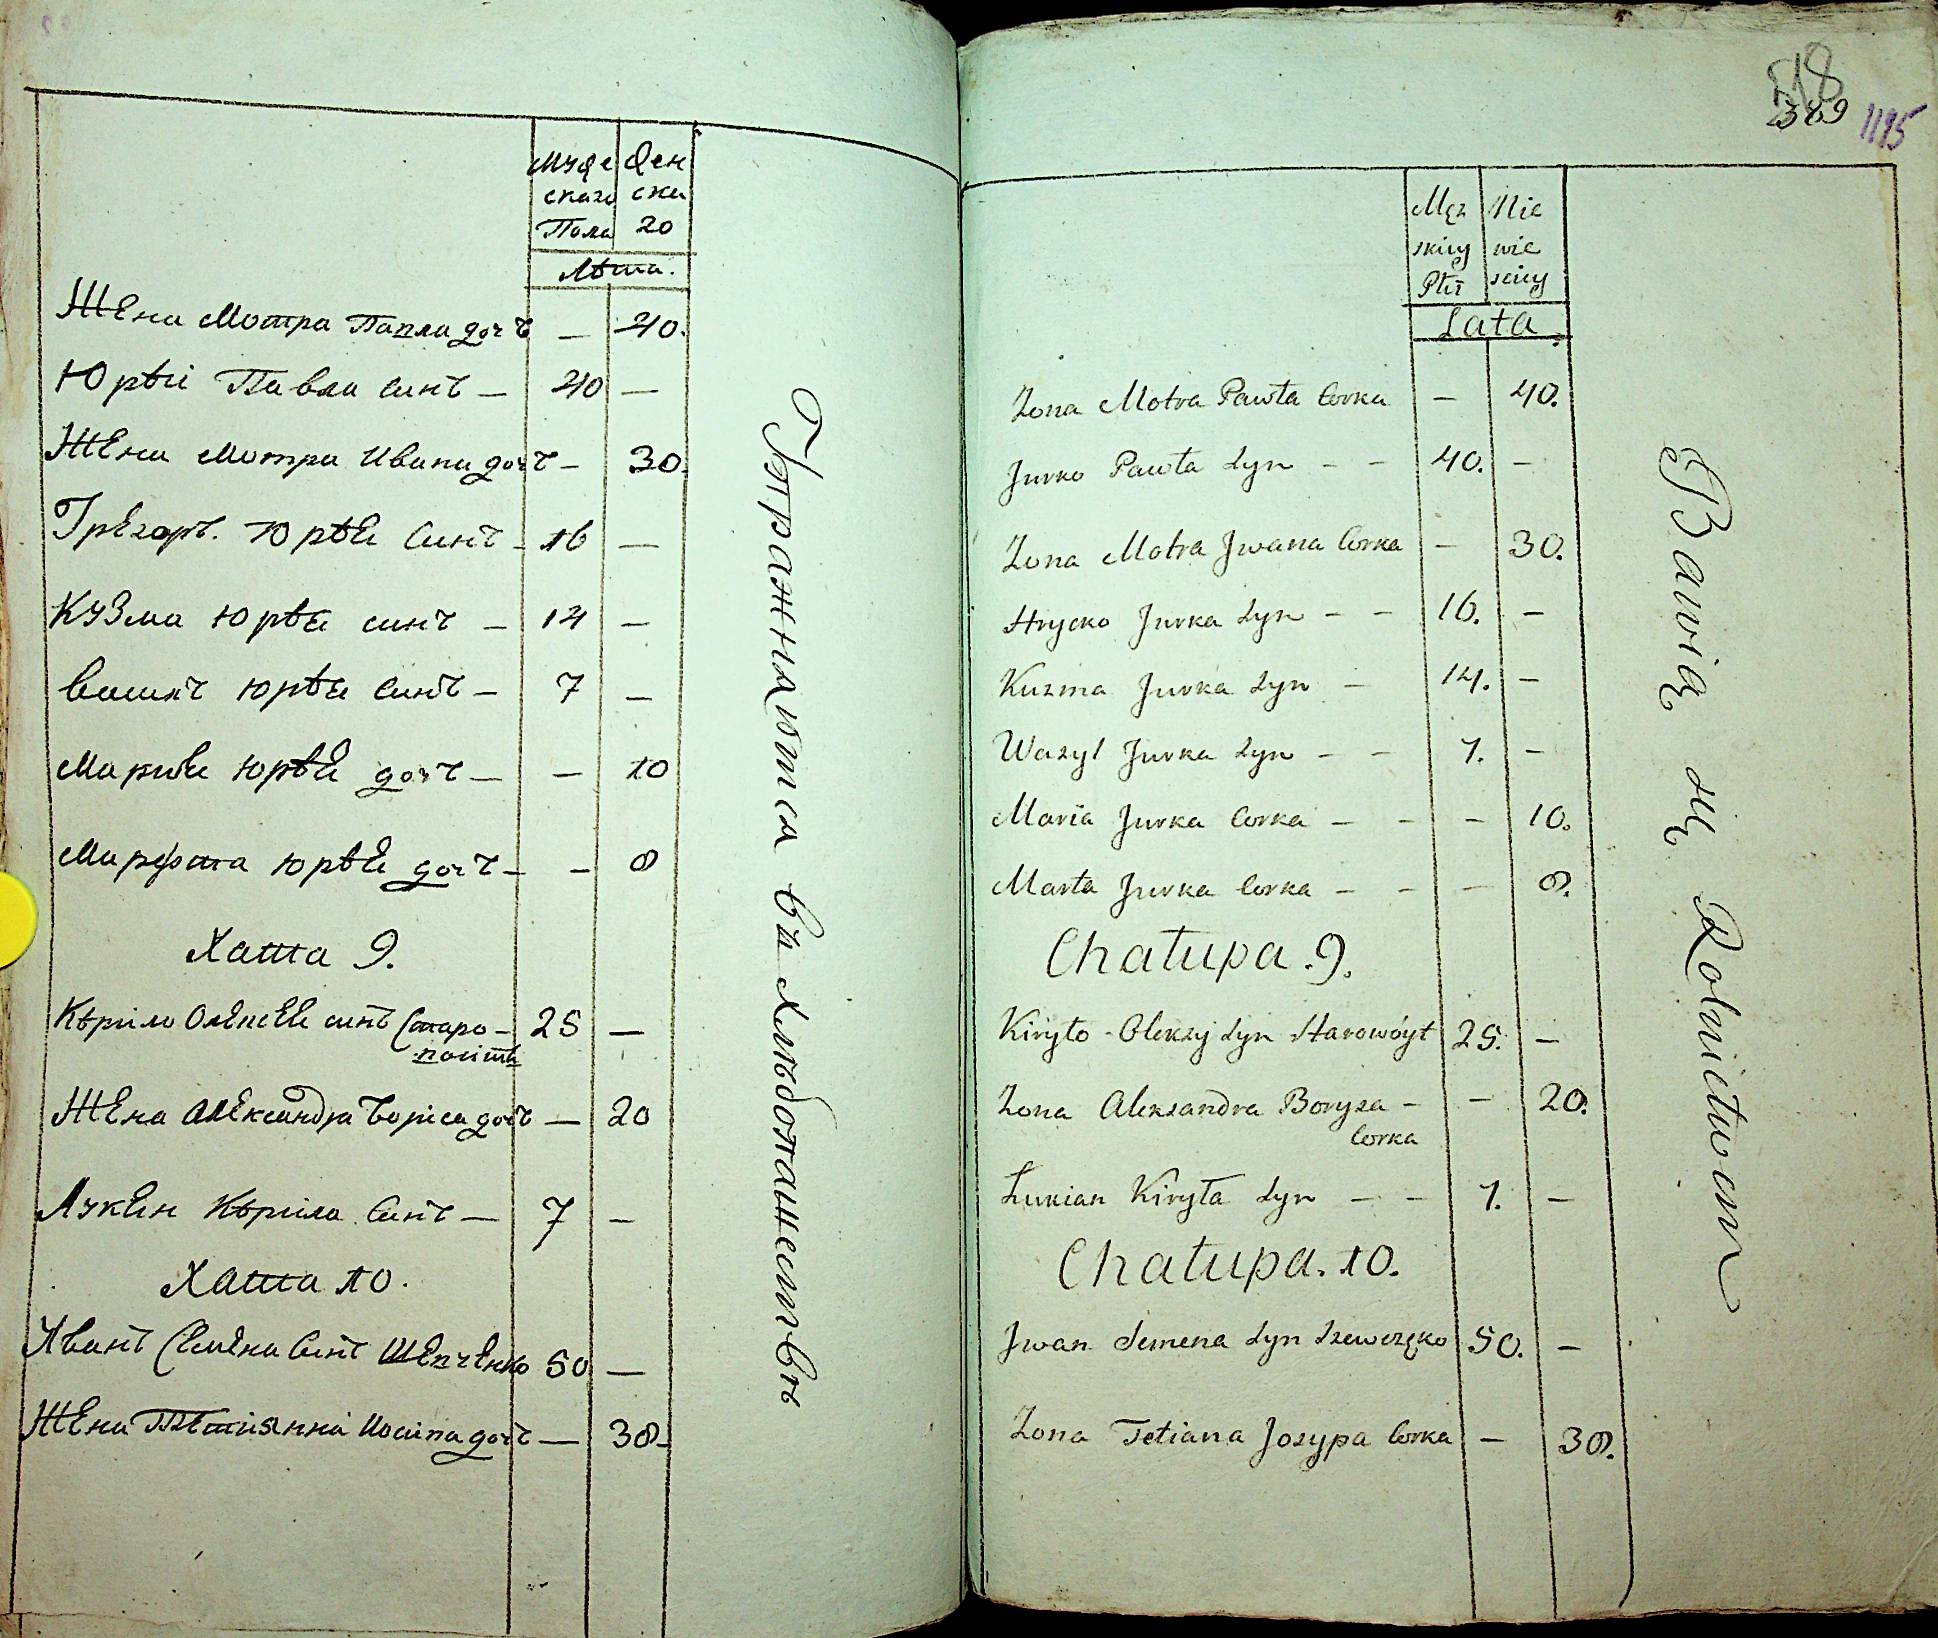 Муже Жен
скаго ска
Пола го
Лѣта.
Жена Мотра Павла дочъ — 40.
Юрѣй Павла синъ — 40 —
Жена Мотра Ивана дочъ — 30.
Грегоръ Юрѣя Синъ — 16 —
Кузма Юрѣя синъ — 14 —
Василъ Юрѣя синъ — 7 —
Мария Юрѣя дочъ — — 10
Марфта Юрѣя дочъ — — 8
Хата 9.
Кѣрило Олексея синъ Старо- 25 —
Жена Александра Бориса дочъ — 20
Лукян Кѣрила Синъ — 7 —
Хата 10.
Иванъ Семена Синъ Шевченко 50 —
Жена Тетиянна Иосипа дочъ — 38
Упражняются въ хлѣбопашествѣ
518
389
1195
Męz Nie
skiey wie
Płci sciey
Lata.
Zona Motra Pawła Corka — 40.
Jurko Pawła Syn - - 40. —
Zona Motra Jwana Corka — 30.
Hrycko Jurka Syn - - 16. —
Kuzma Jurka Syn - 14. —
Wasyl Jurka Syn - - 7. —
Maria Jurka Corka - - - 10.
Marta Jurka Corka - - - 8.
Chałupa. 9.
Kiryło Olexsy Syn Starowóyt 25. —
Zona Alexandra Borysa - - 20.
Corka
Łukian Kiryła Syn - - 7. —
Chałupa. 10.
Jwan Semena Syn Szewczęko 50. —
Zona Tetiana Jozypa Corka — 38.
Bawią się Rolnictwem